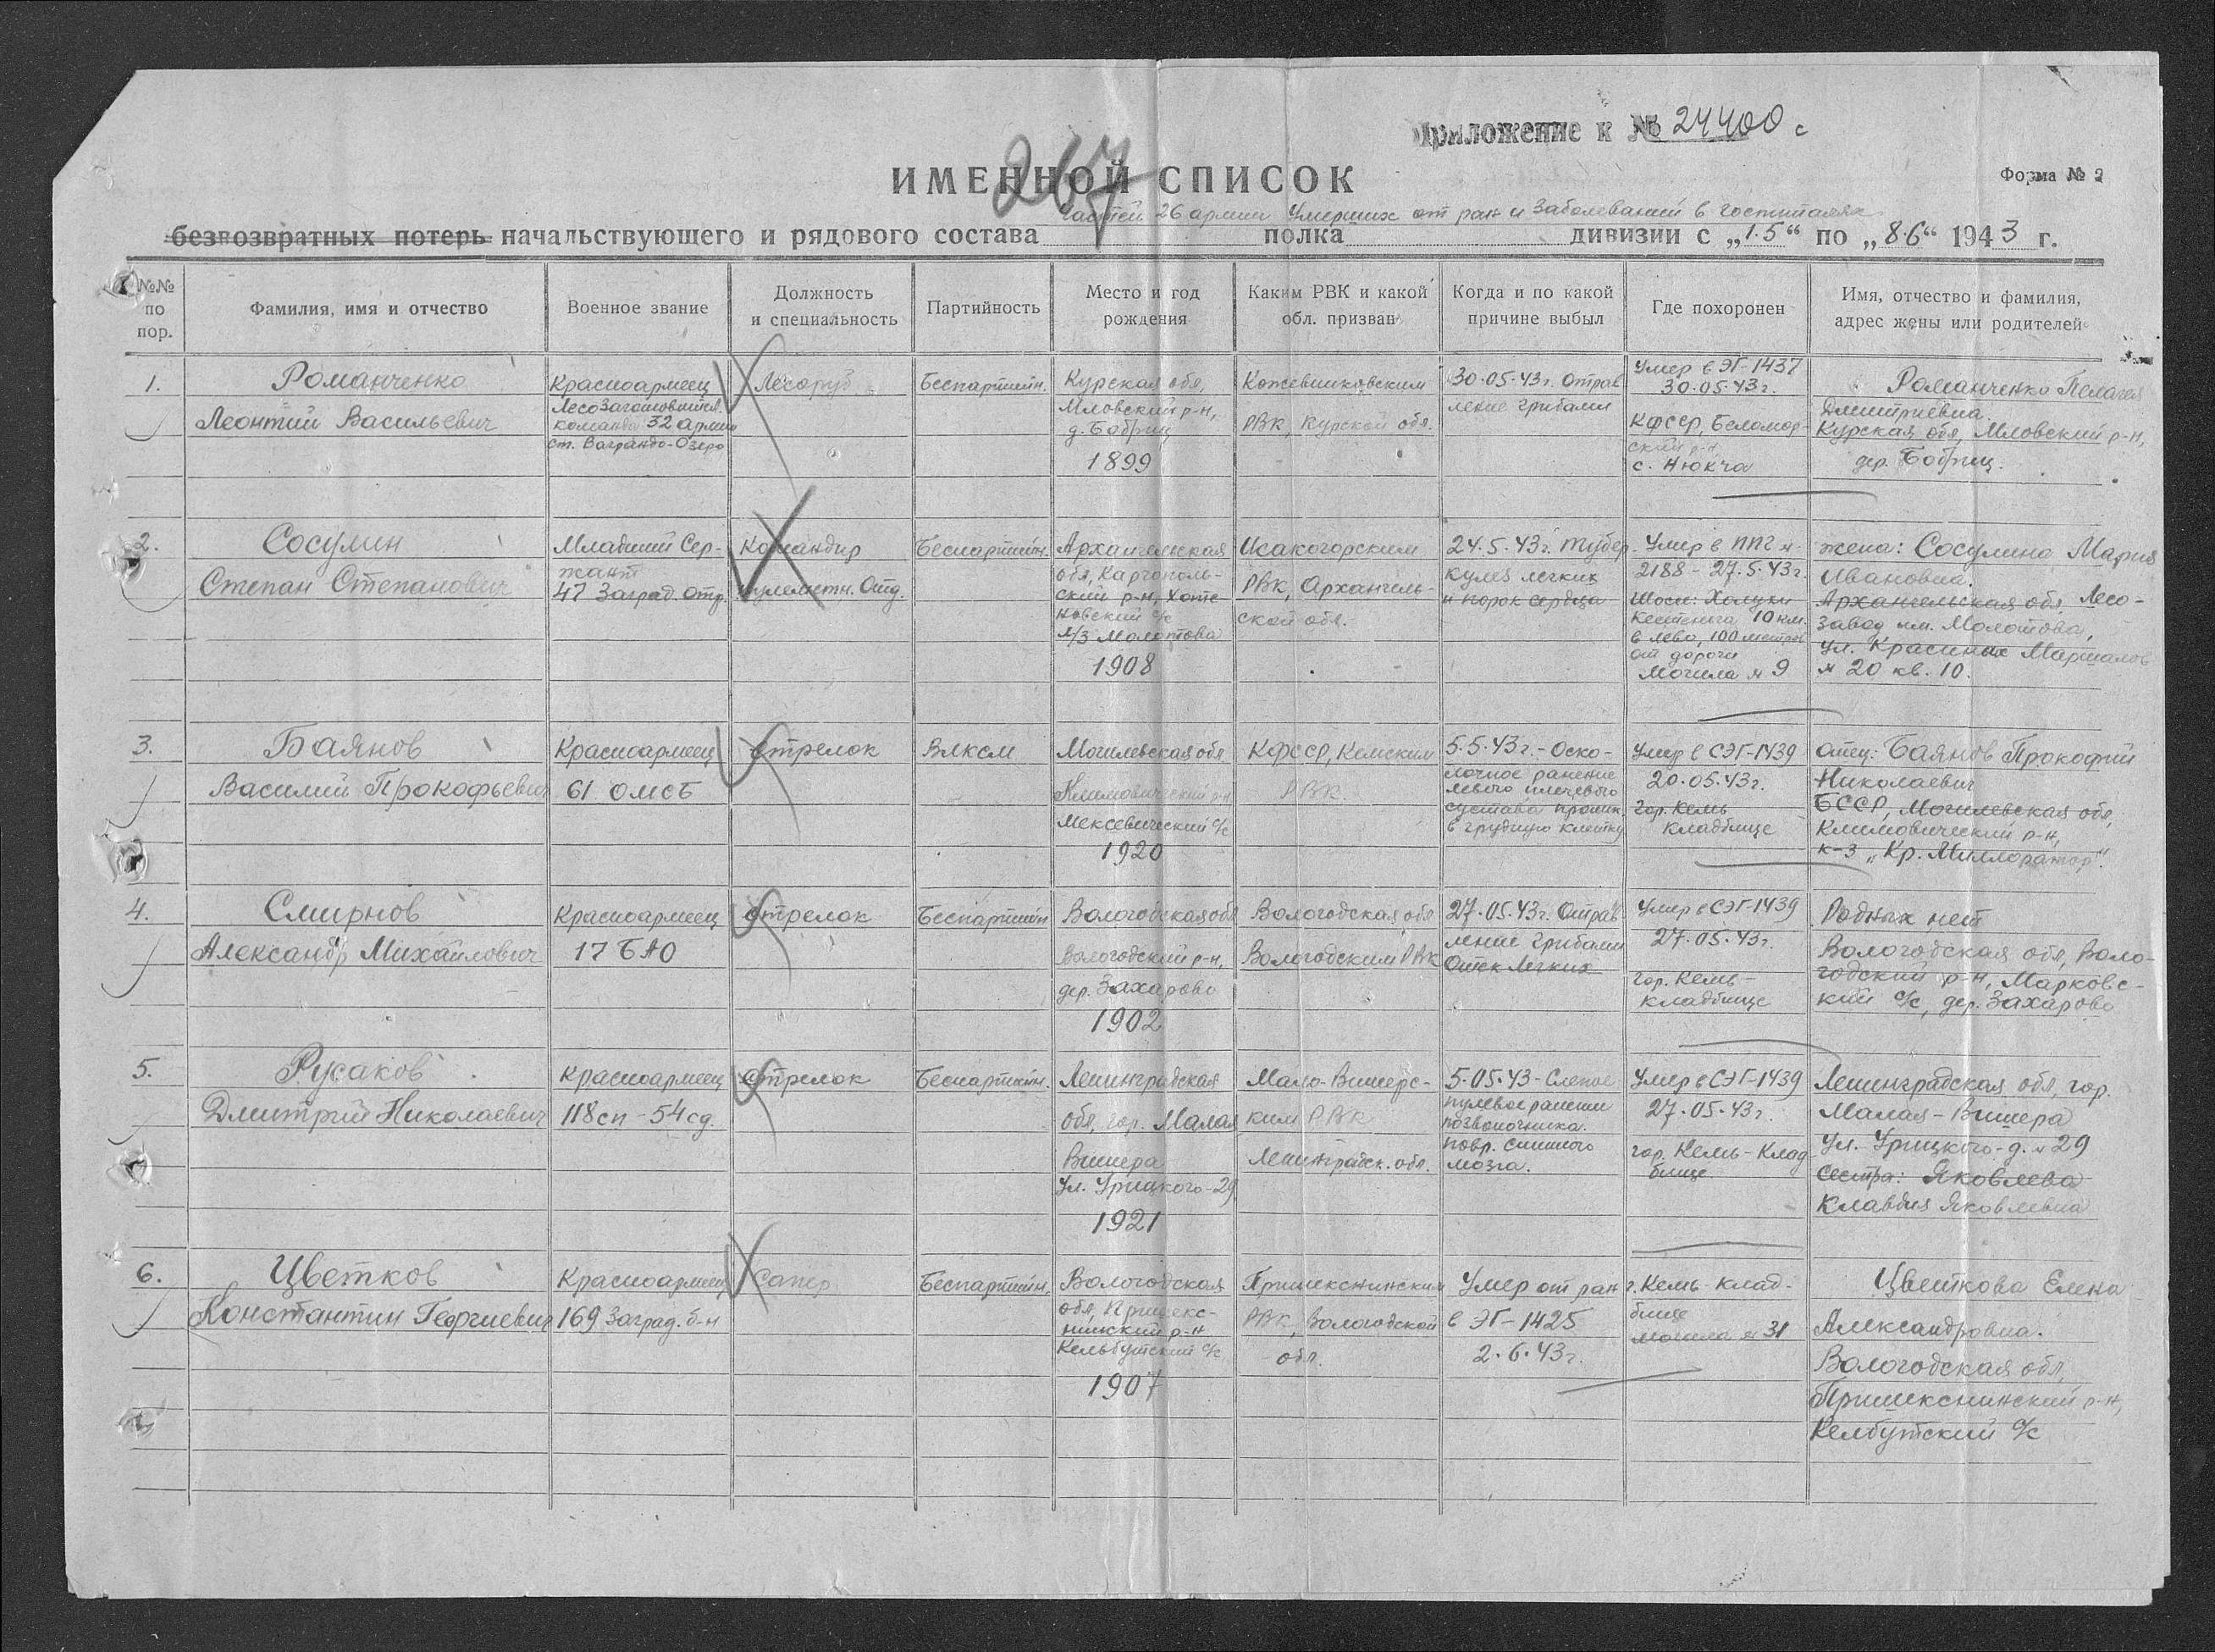 Приложение к № 24400 с
267
ИМЕННОЙ СПИСОК
Форма № 2
частей 26 армии умерших от ран и заболеваний в госпиталях
безвозвратных потерь начальствующего и рядового состава полка дивизии с „1.5“ по „8.6“ 1943 г.
№№ по пор.
Фамилия, имя и отчество
Военное звание
Должность и специальность
Партийность
Место и год рождения
Каким РВК и какой обл. призван
Когда и по какой причине выбыл
Где похоронен
Имя, отчество и фамилия, адрес жены или родителей
1.
Романченко
Леонтий Васильевич
Красноармеец
Лесозаготовительн.
команда 32 армии
ст. Ваграндо-Озеро
Лесоруб
Беспартийн.
Курская обл,
Мловский р-н,
д. Бобриц
1899
Кожевниковским
РВК, Курской обл.
30.05.43г. Отрав
ление грибами
Умер в ЭГ-1437
30.05.43г.
КФССР, Беломор-
ский р-н,
с. Нюкча
Романченко Пелагея
Дмитриевна.
Курская обл, Мловский р-н,
дер. Бобриц.
2.
Сосулин
Степан Степанович
Младший Сер-
жант
47 Заград. отр.
Командир
пулеметн. Отд.
Беспартийн.
Архангельская
обл, Каргополь-
ский р-н, Хоте
новский с/с
л/з Молотова
1908
Исакогорским
РВК, Архангель-
ской обл.
24.5.43г. тубер
кулез легких
и порок сердца
Умер в ППГ №
2188 - 27.5.43г.
Шоссе:
Кестеньга 10 км.
в лево, 100 метров
от дороги
Могила № 9
жена: Сосулина Мария
Ивановна.
Архангельская обл. Лесо-
завод им. Молотова,
ул. Красных Маршалов
№ 20 кв. 10.
3.
Баянов
Василий Прокофьевич
Красноармеец
61 омсб
Стрелок
ВЛКСМ
Могилевская обл
Климовический р-н
Мексевический с/с
1920
КФССР, Кемским
РВК.
5.5.43г. - Оско-
лочное ранение
левого плечевого
сустава проник.
в грудную клетку
Умер в СЭГ-1439
20.05.43г.
гор. Кемь
кладбище
отец: Баянов Прокофий
Николаевич
БССР, Могилевская обл,
Климовический р-н,
к-з „Кр. Миллоратор“.
4.
Смирнов
Александр Михайлович
Красноармеец
17 БАО
Стрелок
Беспартийн
Вологодская обл
Вологодский р-н,
дер. Захарово
1902
Вологодская обл
Вологодским РВК
27.05.43г. Отрав
ление грибами
Отек легких
Умер в СЭГ-1439
27.05.43г.
гор. Кемь -
кладбище
Родных нет
Вологодская обл, Воло-
годский р-н, Марковс-
кий с/с, дер. Захарово
5.
Русаков
Дмитрий Николаевич
Красноармеец
118 сп - 54 сд.
Стрелок
Беспартийн.
Ленинградская
обл, гор. Малая
Вишера
Ул. Урицкого-29
1921
Мало-Вишерс-
ким РВК
Ленинградск. обл.
5.05.43 - Слепое
пулевое ранение
позвоночника.
повр. спинного
мозга.
Умер в СЭГ-1439
27.05.43г.
гор. Кемь - Клад
бище
Ленинградская обл, гор.
Малая-Вишера
Ул. Урицкого - д. № 29
Сестра: Яковлева
Клавдия Яковлевна
6.
Цветков
Константин Георгиевич
Красноармеец
169 Заград. б-н
Сапер
Беспартийн.
Вологодская
обл, Пришекс-
нинский р-н
Кельбутский с/с
1907
Пришекснинским
РВК, Вологодской
обл.
Умер от ран
в ЭГ-1425
2.6.43г.
г. Кемь клад-
бище
могила № 31
Цветкова Елена
Александровна.
Вологодская обл,
Пришекснинский р-н,
Келбутский с/с